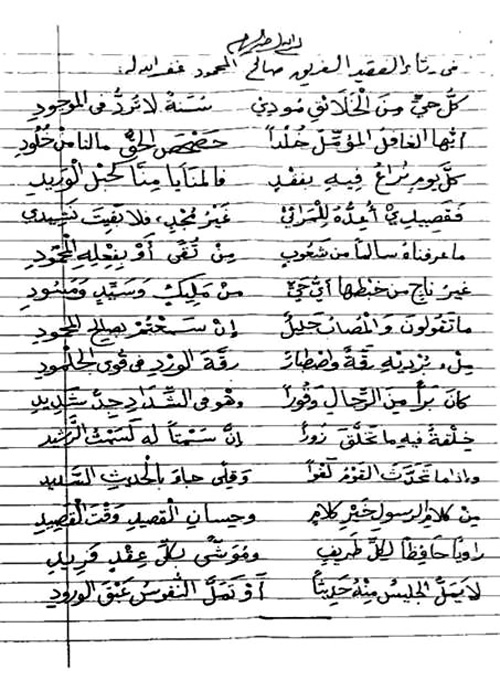 في رثاء الفقيد العزيز صالح المحمود غفر الله له
كلُّ حيٍّ مِنَ الخَلائقِ مُودي سُنَّةٌ لا تُرَدُّ في الموجودِ
أيُّها الغافلُ المؤمِّلُ خُلْداً حَصْحَصَ الحقُّ مالنا من خُلُودِ
كلَّ يومٍ نُراعُ فيهِ بفَقْدٍ فالمنَايا مِنَّا كَحَبْلِ الوَرِيدِ
فقصيدي أُعِدُّهُ لِلْمَراثي غيرُ مُجْدٍ، ولا بَقِيتُ نَشِيدي
ما عرفناهُ سالماً من شَعُوبٍ مِنْ تُقًى أَوْ بِفِعْلِهِ المحمودِ
غيرُ ناجٍ من خبْطها أيُّ حَيٍّ منْ مَليكٍ وسَيِّدٍ ومَسُودِ
ما تقولونَ والمُصابُ جَليلٌ إنْ سَمِعْتُمْ بصالحِ المحمودِ
مِلءُ بُرْدَيْهِ رِقَّةٌ واصْطِبارٌ رِقَّةَ الورْدِ في قُوى الجلْمُودِ
كانَ بَرّاً مِنَ الرِّجالِ وَقُوراً وهو في الشِّدادِ جِدُّ شَدِيدِ
خِلْقةٌ فيهِ ما تَخَلَّقَ زُوراً إنَّ سَمْتاً له كَسَمْتِ الرَّشيدِ
وإذا ما تَحَدَّثَ القَوْمُ لَغْواً وقلى جاءَ بالحديثِ السَّديدِ
مِنْ كلامِ الرسولِ خَيْرِ كلامٍ وحِسانِ القصيدِ وَقْتَ القَصِيدِ
راوياً حافِظاً لِكلِّ طَرِيفٍ ومُوَشًّى بكلِّ عِقْدٍ فَرِيدِ
لا يَمَلُّ الجليسُ مِنْهُ حَدِيثاً أَوْ تَمَلُّ النفوسُ عَبَقَ الورودِ